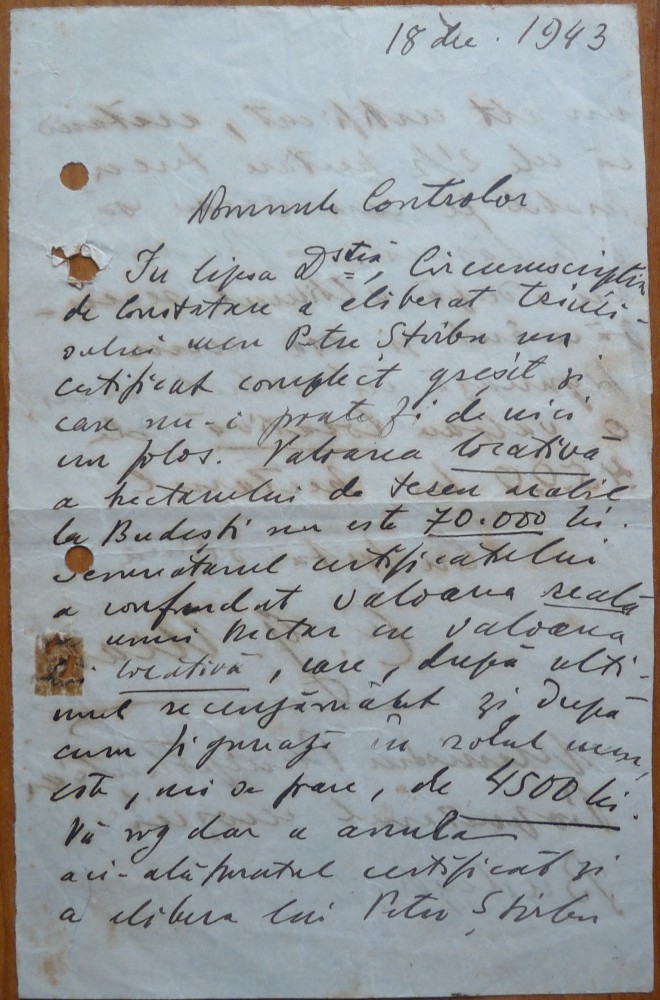 18 dec. 1943
Domnule Controlor
În lipsa Dstră, Circumscripția
de Constatare a eliberat trimi-
sului meu Petre Știrbu un
certificat complect greșit și
care nu-i poate fi de nici
un folos. Valoarea locativă
a hectarului de teren arabil
la Budești nu este 70.000 lei.
Semnatarul certificatului
a confundat valoarea reală
unui hectar cu valoarea
locativă, care, după ulti-
mul recensământ și după
cum figurează în rolul meu,
este, mi se pare, de 4500 lei.
Vă rog dar a anula
aci-alăturatul certificat și
a elibera lui Petre Știrbu